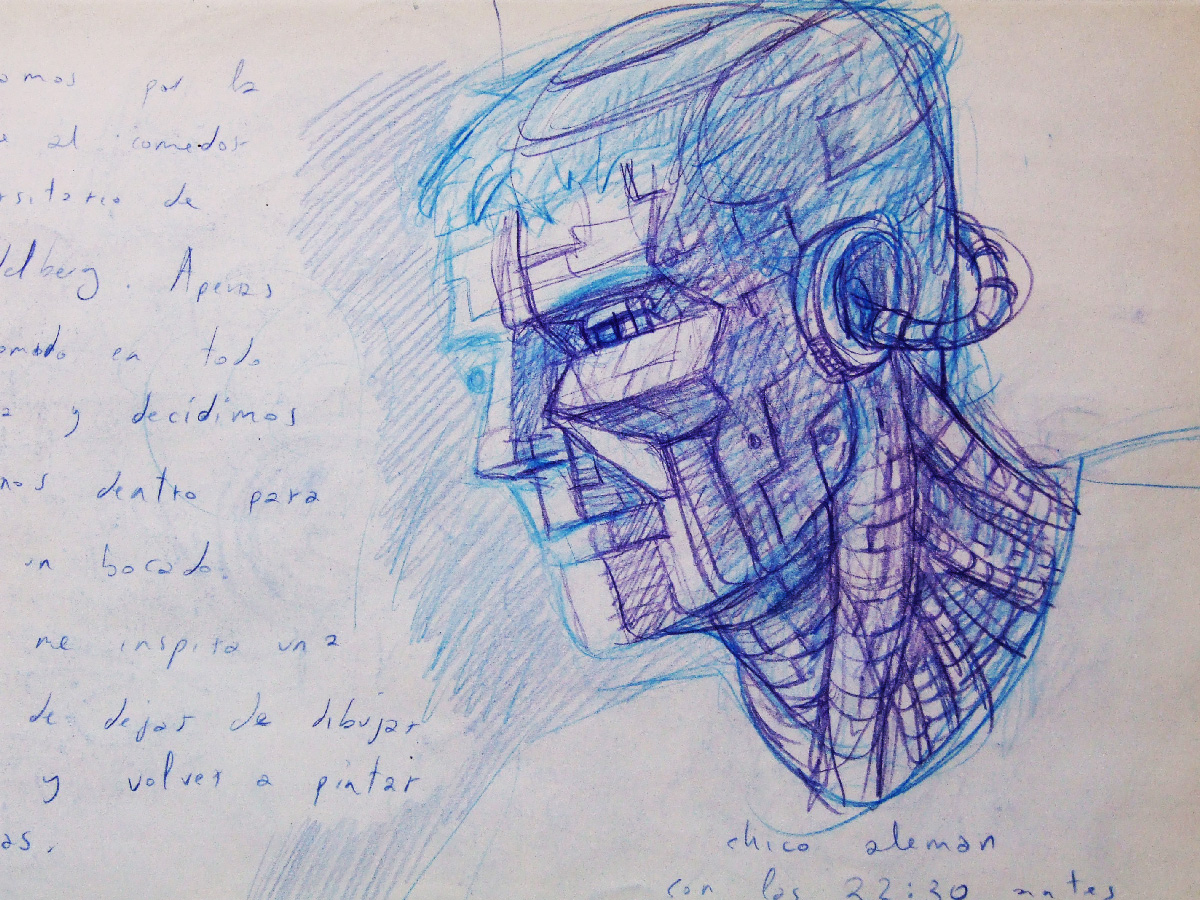 omos por la
e al comedor
rsitario de
delberg. Apenas
omido en todo
a y decidimos
nos dentro para
un bocado.
me inspira una
de dejar de dibujar
y volver a pintar
as.
chico aleman
con las 22:30 antes